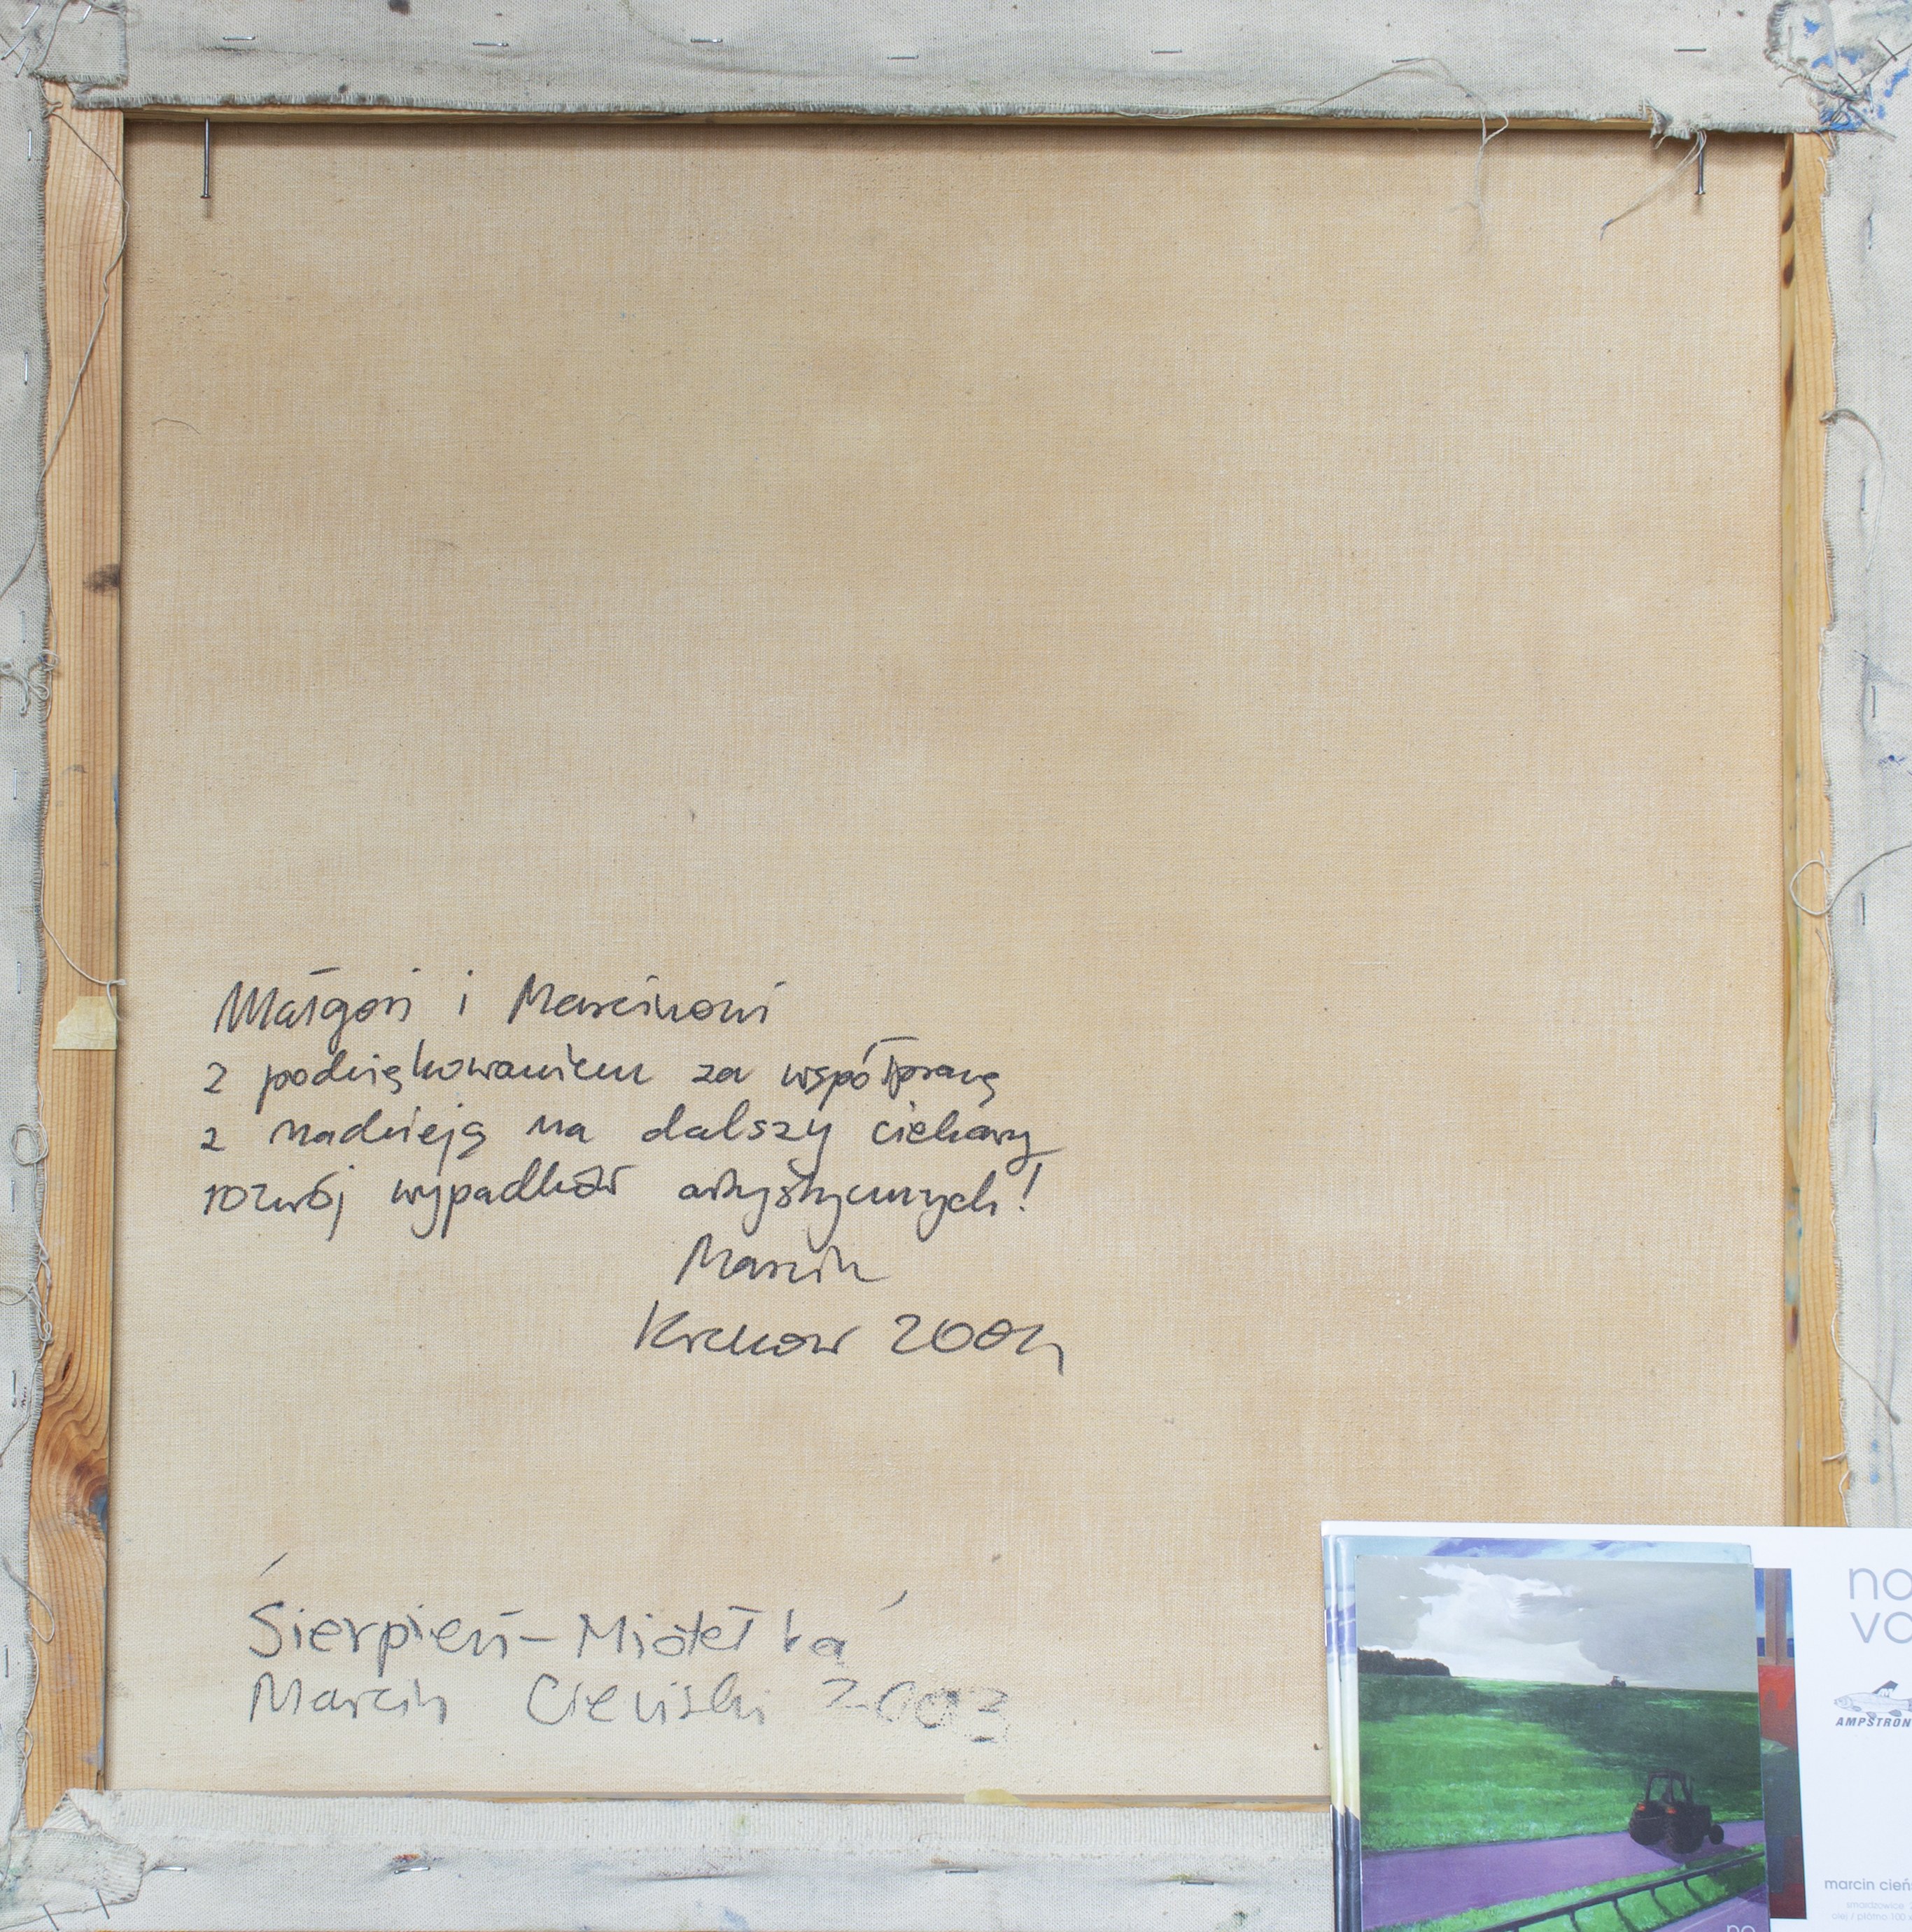 Małgosi i Marcinowi
z podziękowaniem za współpracę
z nadzieją na dalszy ciekawy
rozwój wypadków artystycznych!
Marcin
Krakow 2004
Sierpień - Miotełka
Marcin Cieński 2003
no
va
AMPSTRON
marcin cień
no